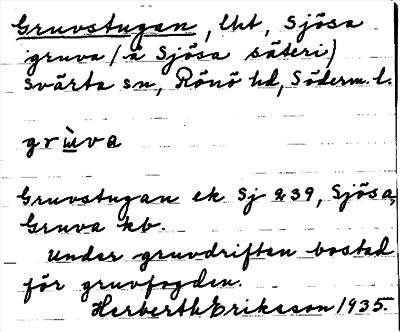 Gruvstugan, lht, Sjösa
gruva (å Sjösa säteri)
Svärta sn, Rönö hd, Söderm. l.
grùva
Gruvstugan ek Sj 239, Sjösa,
Gruva kb.
Under gruvdriften bostad
för gruvfogden.
Herberth Eriksson 1935.